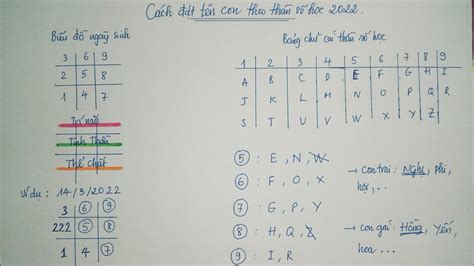 Cách đặt tên con theo thần số học 2022.
Biểu đồ ngày sinh
3 6 9
2 5 8
1 4 7
Trí não
Tinh Thần
Thể chất
Ví dụ : 14/9/2022
3 6 9
222 5 8
1 4 7
Bảng chữ cái thần số học
1 2 3 4 5 6 7 8 9
A B C D E F G H I
J K L M N O P Q R
S T U V W X Y Z
5 : E, N, W → con trai : Nghị, phi,
hội, ...
6 : F, O, X
7 : G, P, Y
8 : H, Q, Z → con gái : Hồng, Yến,
hoa ...
9 : I, R